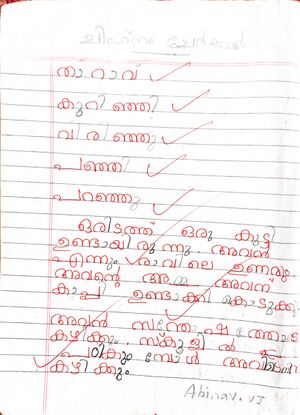 ചിഹ്നം ചേർക്കൽ
താറാവ്
കുറിഞ്ഞി
വിരിഞ്ഞു
പഞ്ഞി
പറഞ്ഞു
ഒരിടത്ത് ഒരു കുട്ടി
ഉണ്ടായിരുന്നു അവൻ
എന്നും രാവിലെ ഉണരും.
അവന്റെ അമ്മ അവന്
കാപ്പി ഉണ്ടാക്കി കൊടുക്കും
അവൻ സന്തോഷത്തോടെ
കഴിക്കും. സ്കൂളിൽ
കഴിക്കും
Abinav. VJ